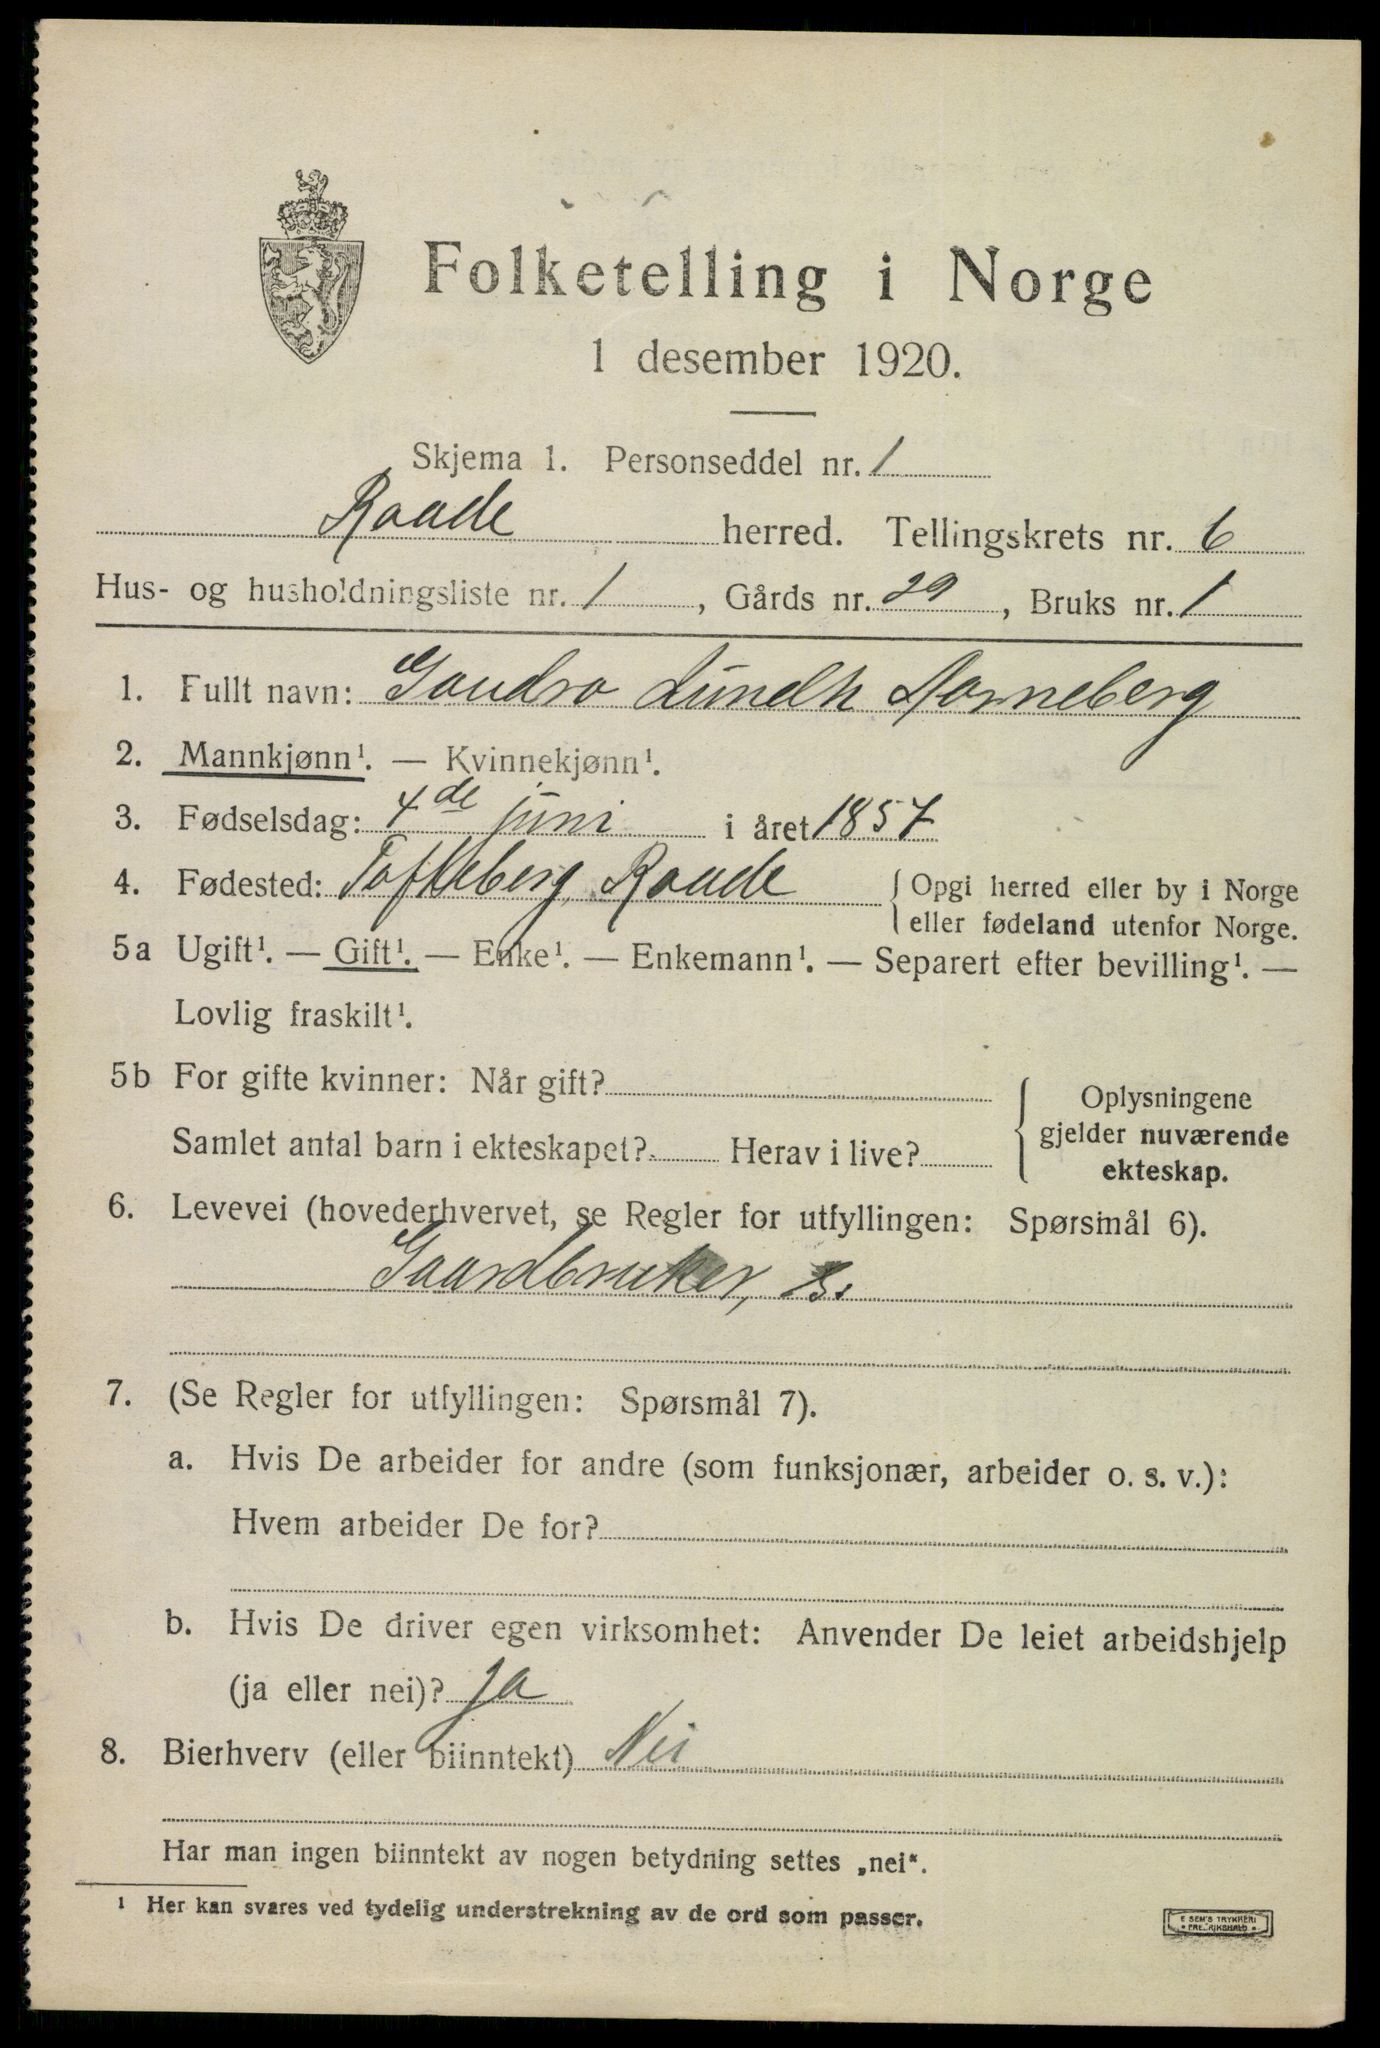 Folketelling i Norge
1 desember 1920.
Skjema 1. Personseddel nr. 1
Raade herred. Tellingskrets nr. 6
Hus- og husholdningsliste nr. 1, Gårds nr. 29, Bruks nr. 1
1. Fullt navn: Lundh
2. Mannkjønn¹. — Kvinnekjønn¹.
3. Fødselsdag: 4de juni i året 1857
4. Fødested: Tofteberg, Raade { Opgi herred eller by i Norge
eller fødeland utenfor Norge.
5a Ugift¹. — Gift¹. — Enke¹. — Enkemann¹. — Separert efter bevilling¹. —
Lovlig fraskilt¹.
5b For gifte kvinner: Når gift?
Samlet antal barn i ekteskapet? Herav i live?
Oplysningene
gjelder nuværende
ekteskap.
6. Levevei (hovederhvervet, se Regler for utfyllingen: Spørsmål 6).
Gaardbruker, S.
7. (Se Regler for utfyllingen: Spørsmål 7).
a. Hvis De arbeider for andre (som funksjonær, arbeider o. s. v.):
Hvem arbeider De for?
b. Hvis De driver egen virksomhet: Anvender De leiet arbeidshjelp
(ja eller nei)? Ja
8. Bierhverv (eller biinntekt) Nei
Har man ingen biinntekt av nogen betydning settes „nei“.
¹ Her kan svares ved tydelig understrekning av de ord som passer.
E SEM'S TRYKKERI
FREDRIKSHALD